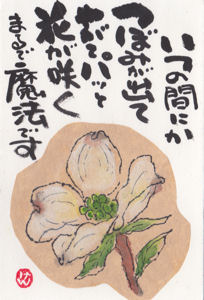 いつの間にか
つぼみが出て
パッと
花が咲く
まるで魔法です